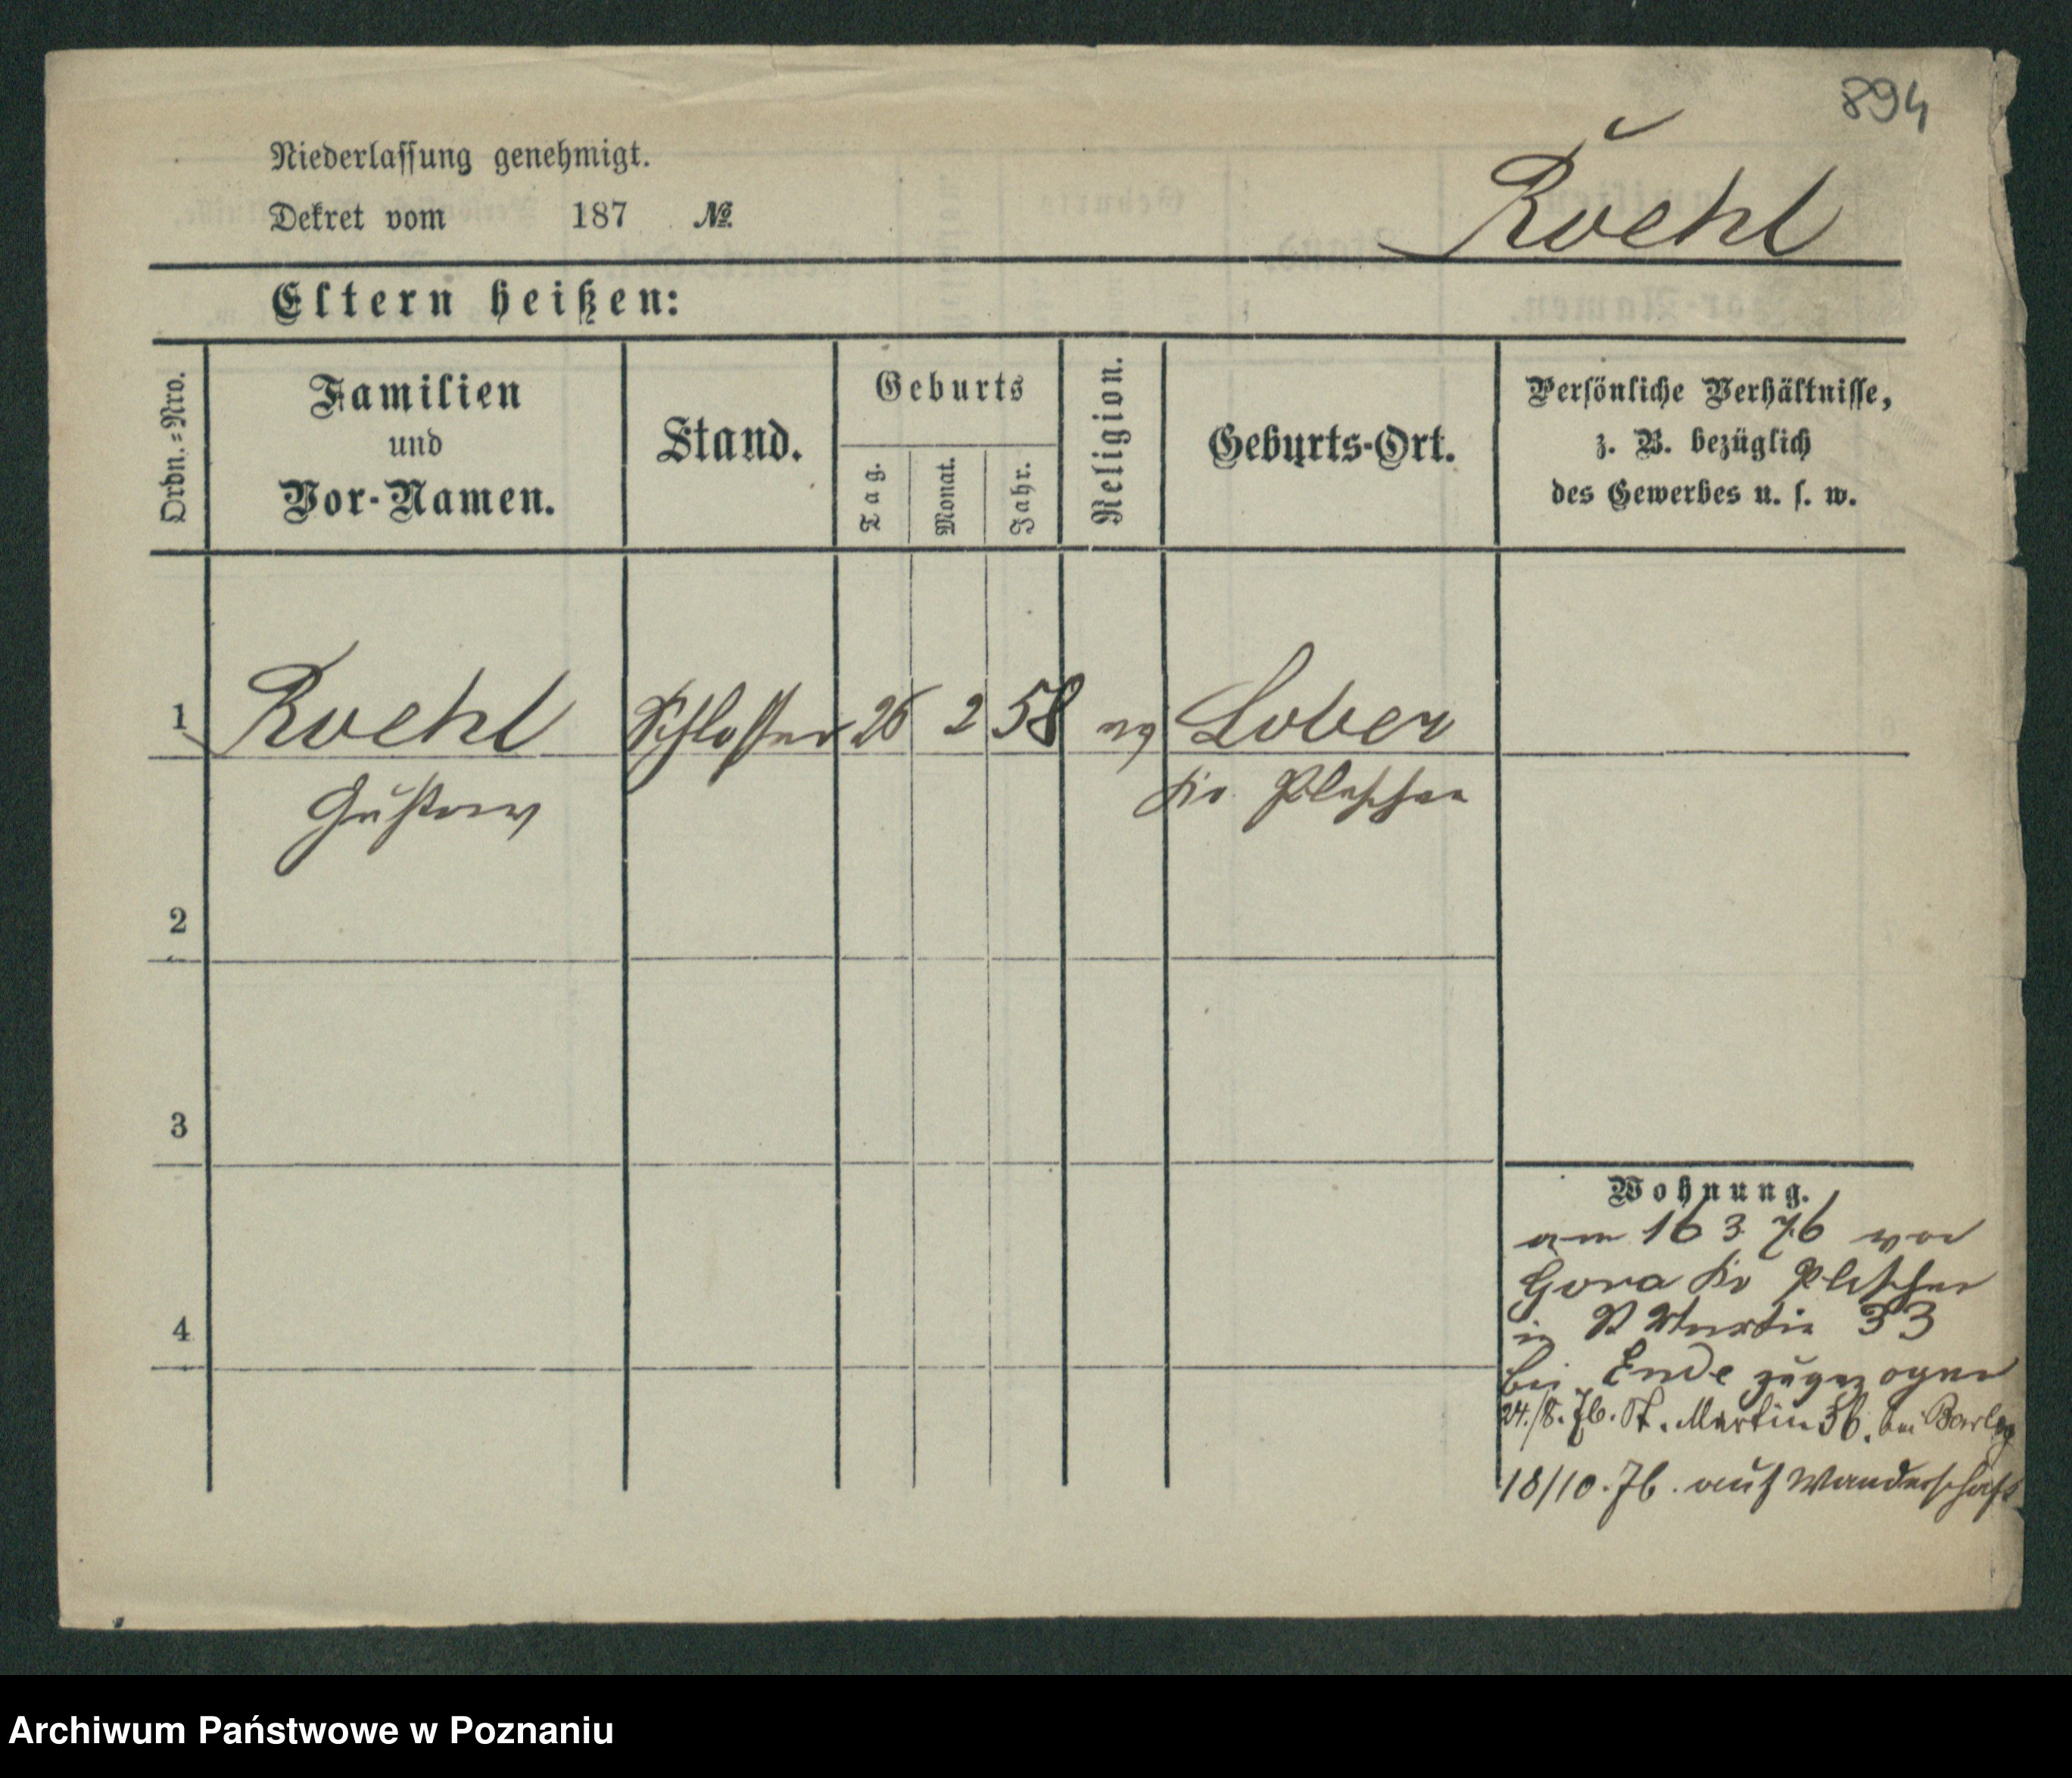 894
Niederlassung genehmigt.
Dekret vom 187 №
Roehl
Eltern heißen:
Ordn.=Nro.
Familien
und
Vor-Namen.
Stand.
Geburts
Tag.
Monat.
Jahr.
Religion.
Geburts-Ort.
Persönliche Verhältnisse,
z. B. bezüglich
des Gewerbes u. s. w.
1 Roehl Schlosser 26 2 58 ev
Gustav Kr. Pleschen
2
3
4
Wohnung.
am 16 3 76 von
Gora Kr Pleschen
in St Martin 33
bei Ende zugezogen
24./8. 76. St. Martin 36. bei
18/10. 76. auf Wanderschaft
Archiwum Państwowe w Poznaniu